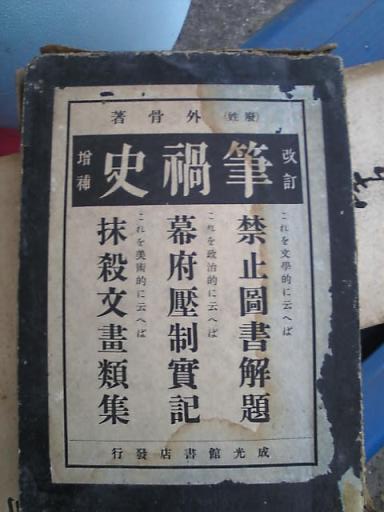 (廢姓)外骨著
改訂
筆禍史
増補
これを文學的に云へば
禁止圖書解題
これを政治的に云へば
幕府壓制實記
これを美術的に云へば
抹殺文畫類集
成光館書店發行